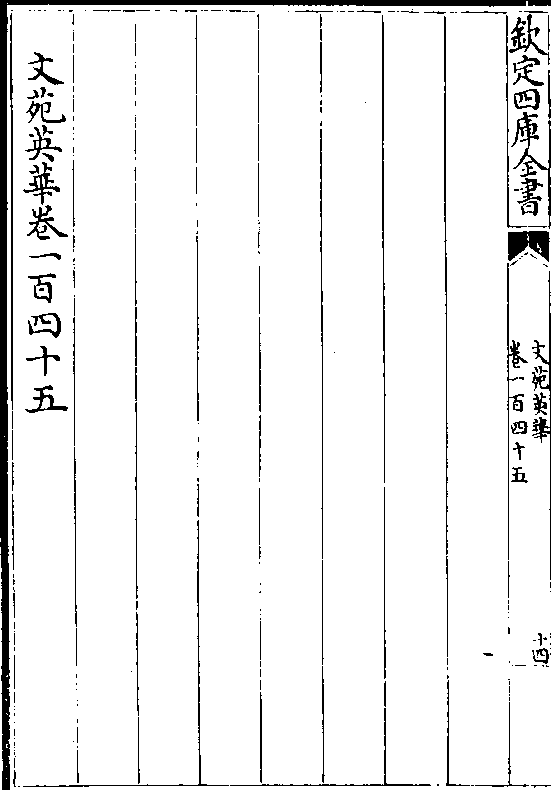 欽定四庫全書
文苑英華
卷一百四十五
十四
文苑英華卷一百四十五